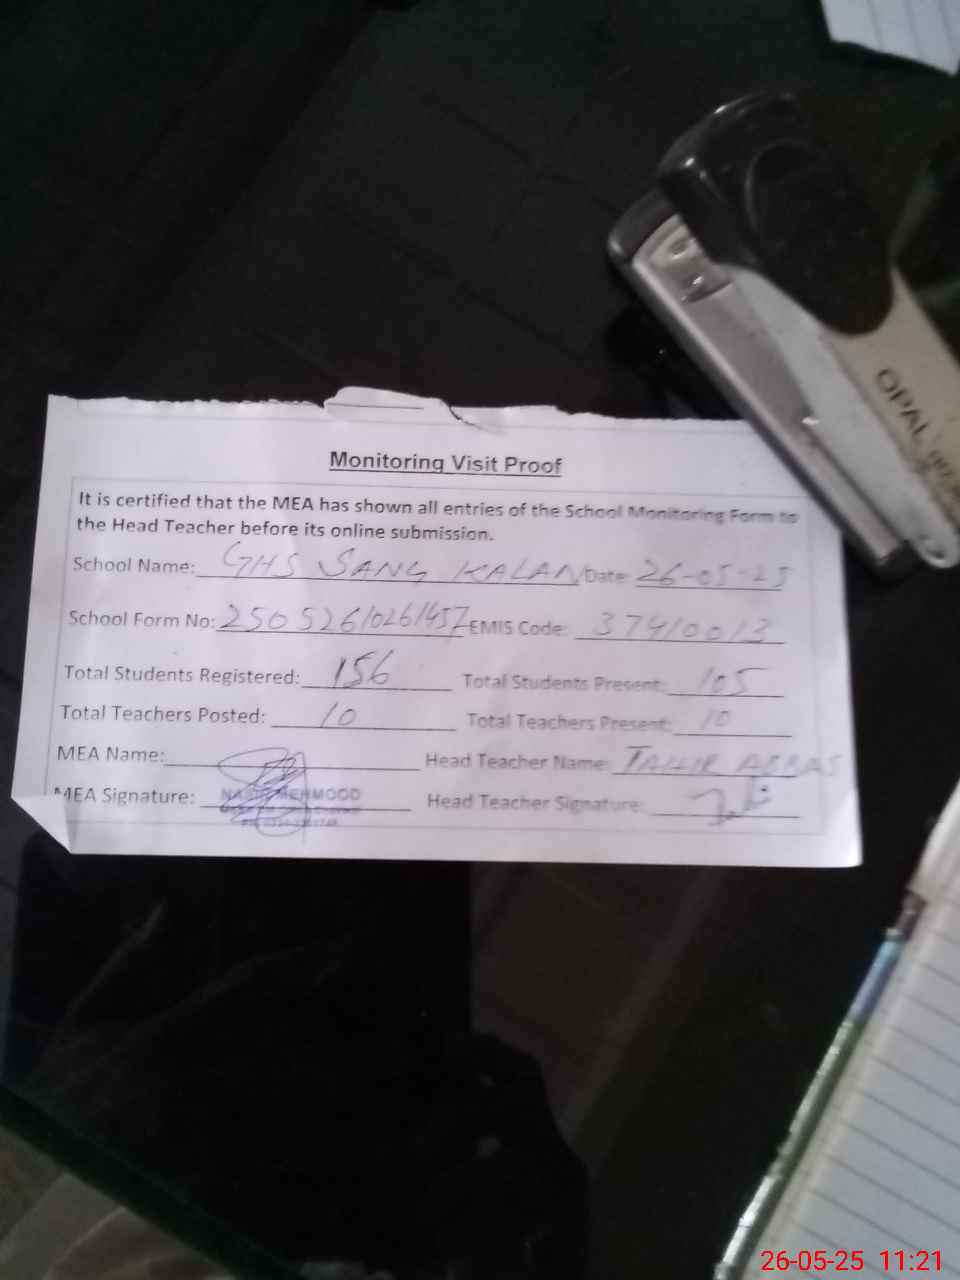 OPAL
Monitoring Visit Proof
It is certified that the MEA has shown all entries of the School Monitoring Form to
the Head Teacher before its online submission.
School Name: GHS SANG KALAN Date: 26-05-25
School Form No: 25052610261457 EMIS Code: 37410013
Total Students Registered: 156 Total Students Present: 105
Total Teachers Posted: 10 Total Teachers Present: 10
MEA Name: Head Teacher Name: TAHIR ABBAS
MEA Signature: NASIR MEHMOOD Head Teacher Signature:
26-05-25 11:21